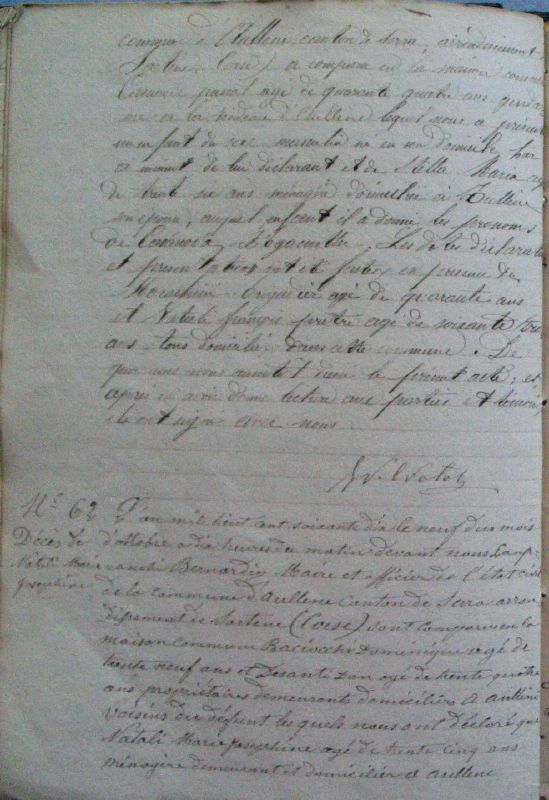 commune d'Aullene canton de Serra, arrondissement de
Sartene (Corse) a comparu en la maison commune
age de quarante quatre ans
me a la residence d'Aullene lequel nous a présenté
un enfant du sexe masculin né en son domicile hier
a minuit de lui déclarant et de Stella Maria agée
de trente six ans ménagère domiciliée à Aullene
son epouse, auquel enfant il a donné les prenoms
de . Les dites déclaration
et presentation ont été faites en presence de
brigadier agé de quarante ans
et Natali françois pretre agé de soixante
ans tous domiciliés dans cette commune. De
quoi nous avons dressé le present acte, et
après en avoir donné lecture aux parties et temoins
ils ont signé avec nous.
Nº 62 L'an mil huit cent soixante dix le neuf du mois
Décès de d'octobre a dix heures du matin devant nous
Natali Marie Bernardin Maire et officier de l'état civil
Josephine de la commune d'Aullene Canton de Serra arron
dissement de Sartene (Corse) sont comparus en la
maison commune Baciocchi Dominique agé de
trente neuf ans et Desanti agé de trente quatre
ans propriétaires demeurants domiciliés a Aullene
voisins du défunt les quels nous ont déclaré que
Natali Marie Josephine agé de trente cinq ans
ménagere demeurant et domiciliée a Aullene